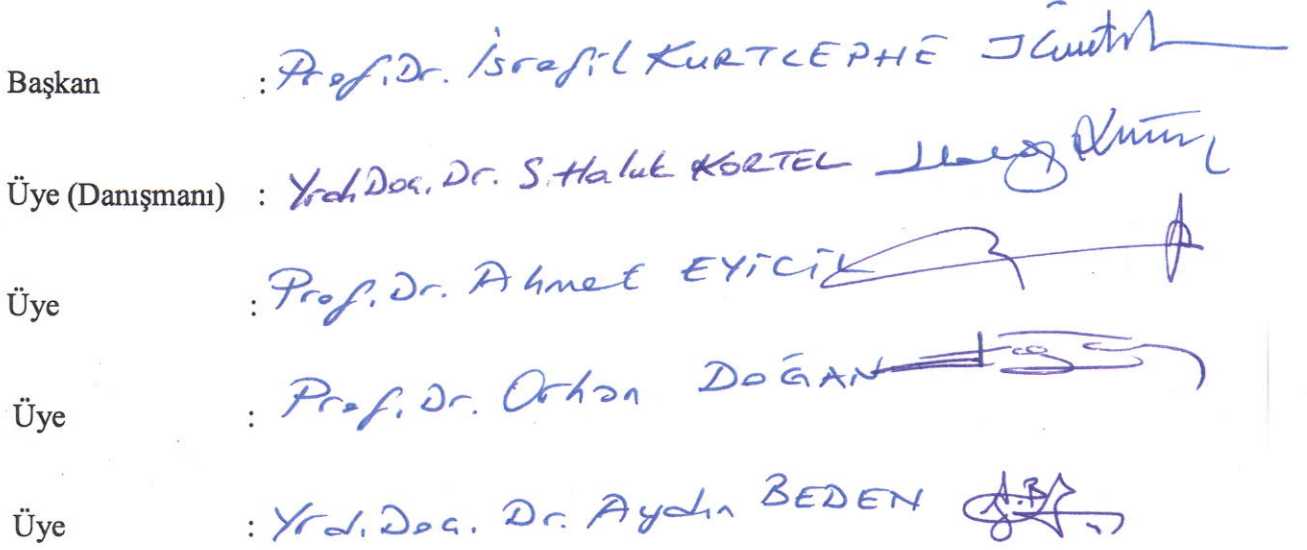 Başkan : Prof. Dr. İsrafil KURTCEPHE
Üye (Danışmanı) : Yrd. Doç. Dr. S. Haluk KORTEL
Üye : Prof. Dr. Ahmet EYİCİL
Üye : Prof. Dr. Orhan DOĞAN
Üye : Yrd. Doç. Dr. Aydın BEDEN